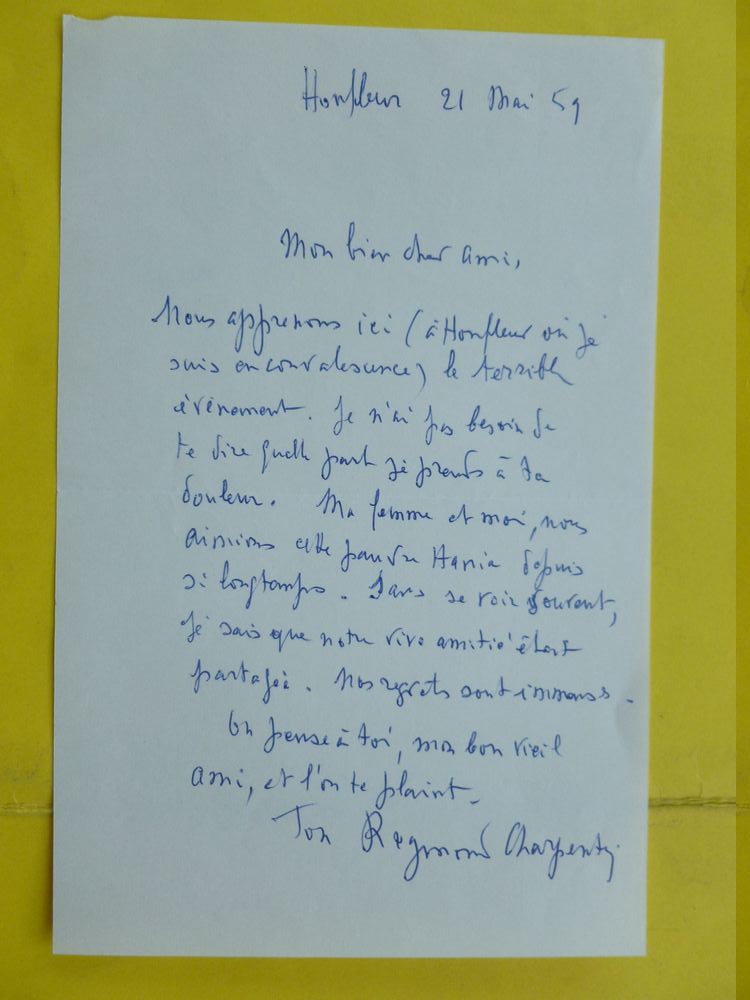 Honfleur 21 Mai 59
Mon bien cher ami,
Nous apprenons ici (à Honfleur où je
suis en convalescence) le terrible
évènement. Je n'ai pas besoin de
te dire quelle part je prends à ta
douleur. Ma femme et moi, nous
aimions cette pauvre Hania depuis
si longtemps. Sans se voir souvent,
je sais que notre vive amitié était
partagée. Nos regrets sont immenses.
On pense à toi, mon bon vieil
ami, et l'on te plaint.
Ton Raymond Charpentier